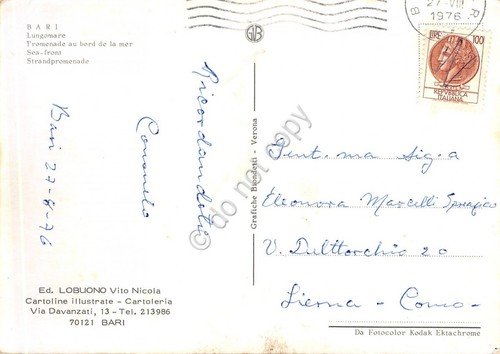 BARI
Lungomare
Tromenade au bord de la mer
Sea-front
Strandpromenade
27 VIII
1976
B
R
LIRE 100
REPVBBLICA
ITALIANA
Ricordandoti
Bari 27-8-76
Grafiche Biondetti - Verona
Gent.ma Sig.a
Eleonora Marcelli Spreafico
V. Delttorchio 20
Lierna - Como -
Ed. LOBUONO Vito Nicola
Cartoline illustrate - Cartoleria
Via Davanzati, 13 - Tel. 213986
70121 BARI
Da Fotocolor Kodak Ektachrome
do not copy